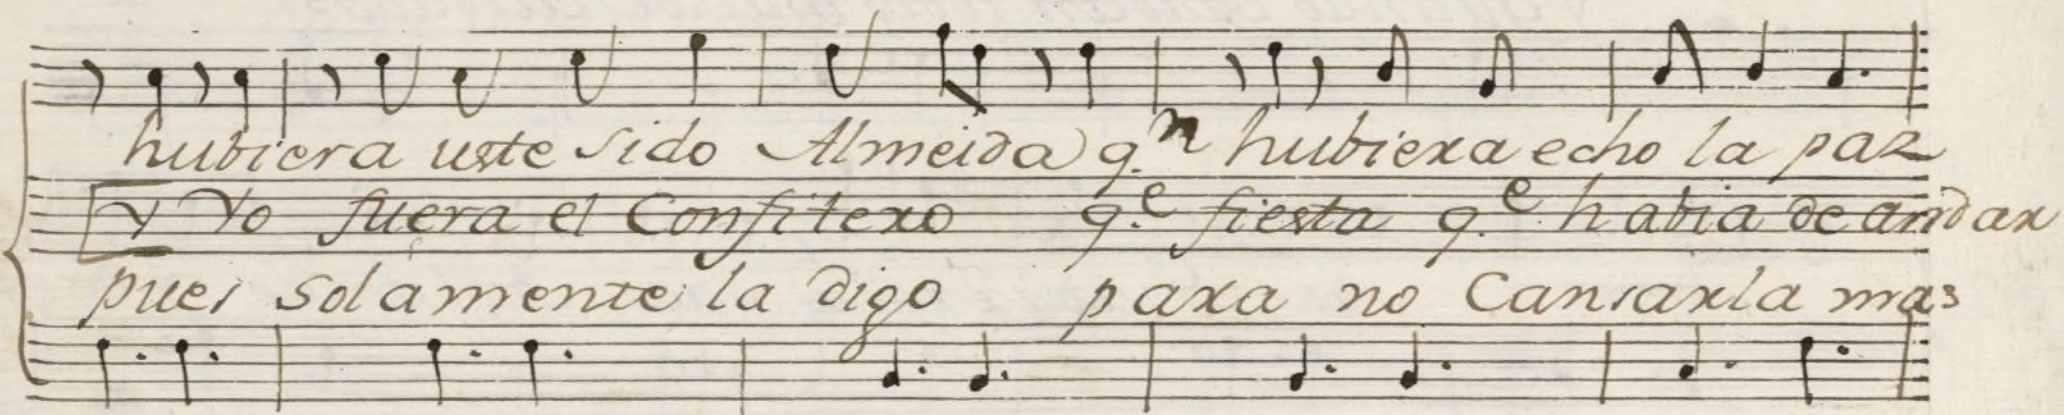 hubiera uste sido Almeida q.n hubiera echo la paz
Y Yo fuera el Confitero q.e fiesta q.e habia de andar
pues solamente la digo para no Cansarla mas